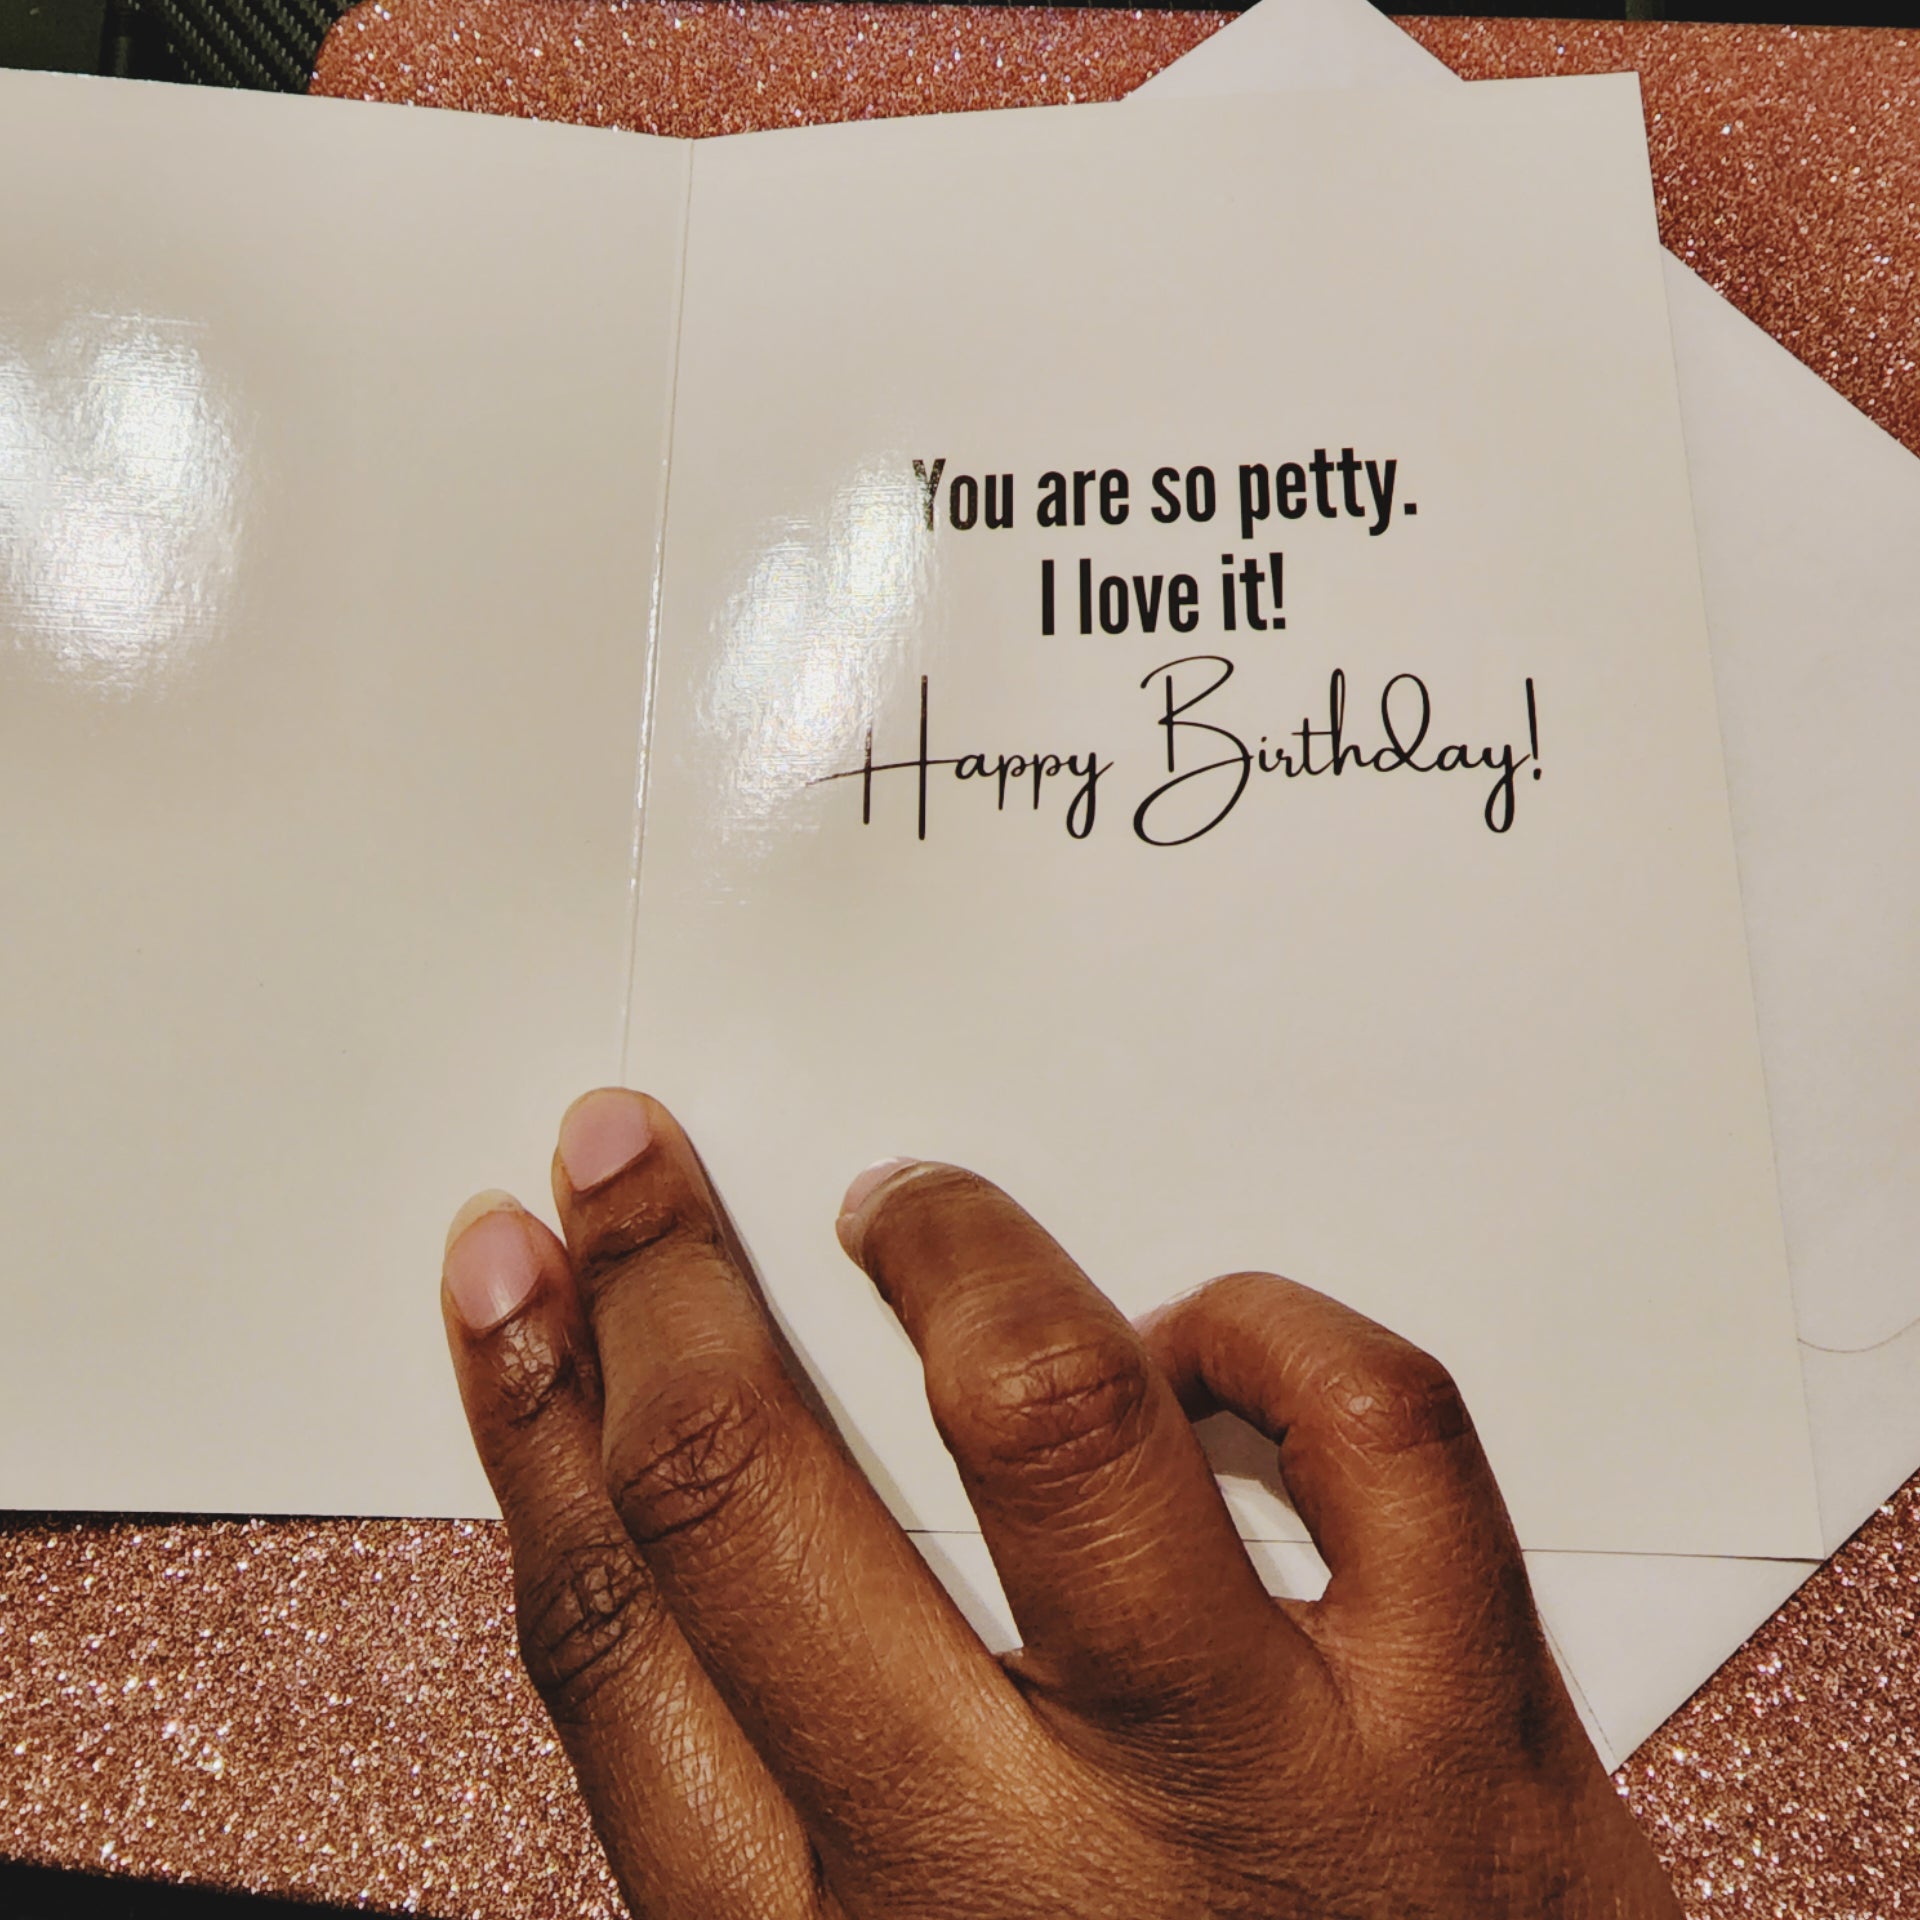 You are so petty.
I love it!
Happy Birthday!